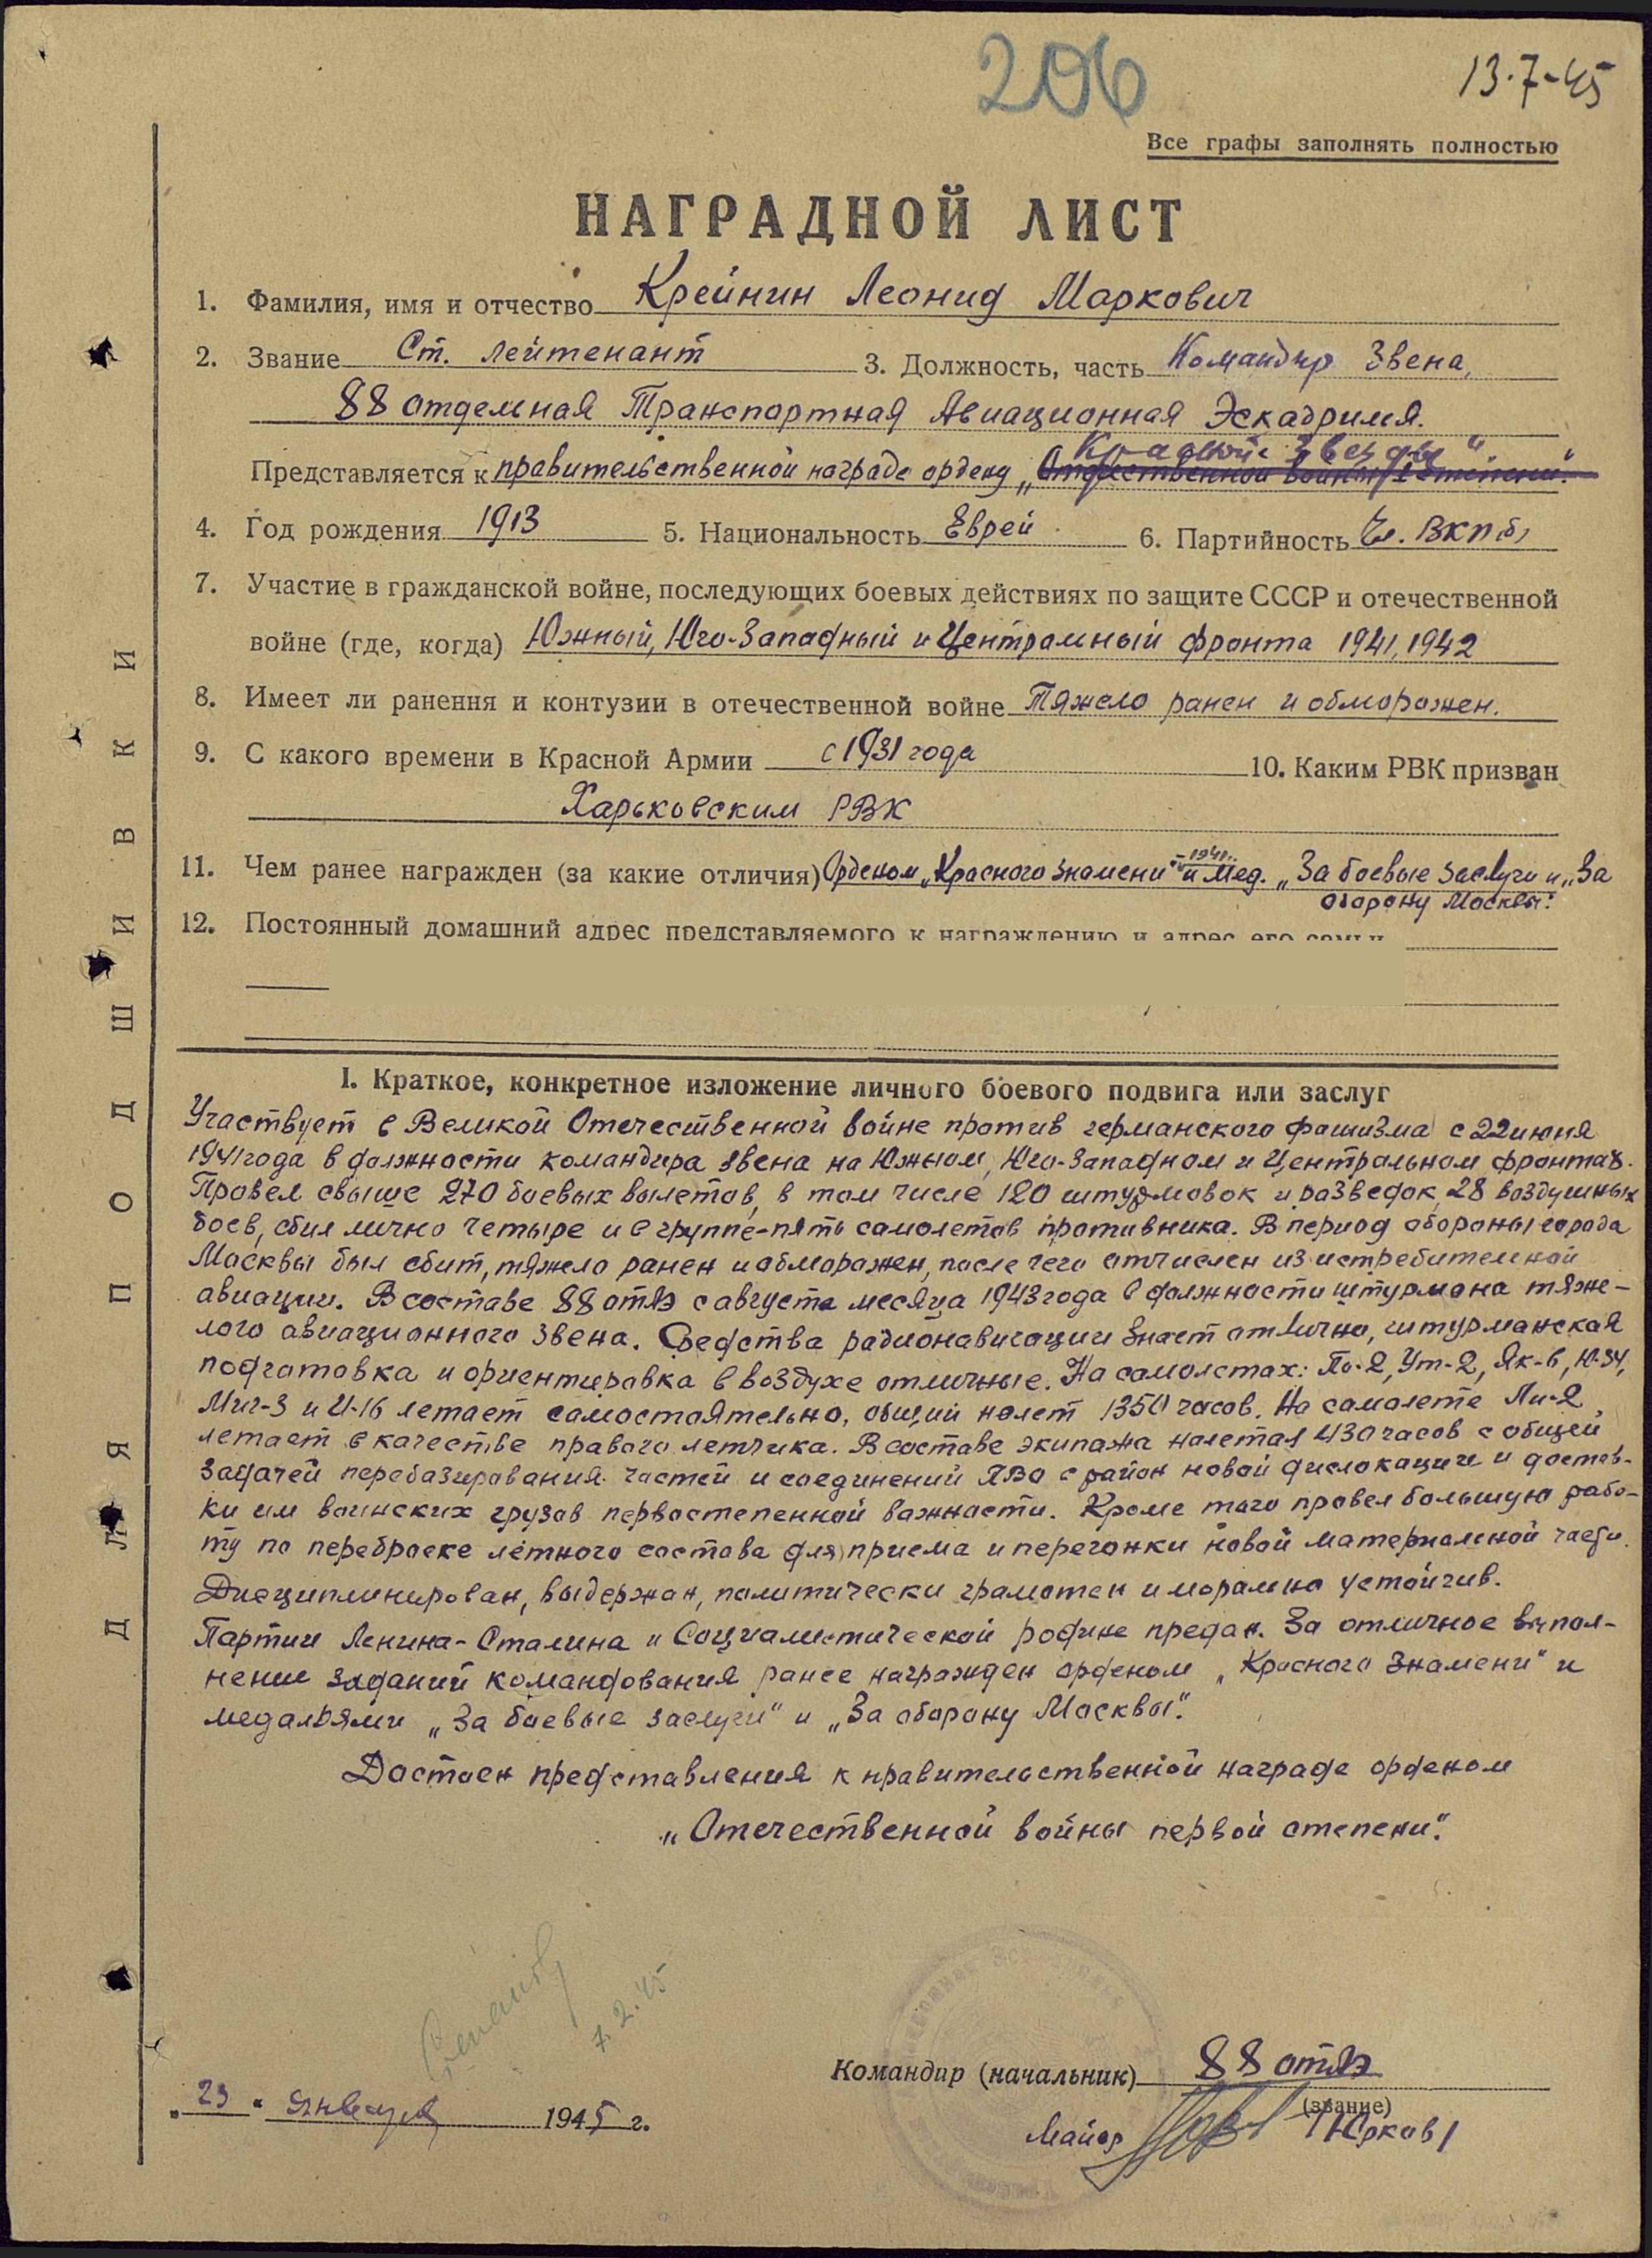 206
13·7-45
Все графы заполнять полностью
НАГРАДНОЙ ЛИСТ
1. Фамилия, имя и отчество Крейнин Леонид Маркович
2. Звание Ст. лейтенант 3. Должность, часть Командир Звена,
88 отдельная Транспортная Авиационная Эскадрилья.
Красной Звезды".
Представляется к правительственной награде ордену „Отечественной войны I степени".
4. Год рождения 1913 5. Национальность Еврей 6. Партийность Чл. ВКП(б)
7. Участие в гражданской войне, последующих боевых действиях по защите СССР и отечественной
войне (где, когда) Южный, Юго-Западный и Центральный фронта 1941, 1942
8. Имеет ли ранения и контузии в отечественной войне Тяжело ранен и обморожен.
9. С какого времени в Красной Армии с 1931 года 10. Каким РВК призван
Харьковским РВК
11. Чем ранее награжден (за какие отличия) Орденом „Красного Знамени" - 1941г. и Мед. „За боевые заслуги и „За
оборону Москвы".
12. Постоянный домашний адрес представляемого к награждению и адрес его семьи
I. Краткое, конкретное изложение личного боевого подвига или заслуг
Участвует в Великой Отечественной войне против германского фашизма с 22 июня
1941 года в должности командира звена на Южном, Юго-Западном и Центральном фронтах.
Провел свыше 270 боевых вылетов, в том числе 120 штурмовок и разведок, 28 воздушных
боев, сбил лично четыре и в группе-пять самолетов противника. В период обороны города
Москвы был сбит, тяжело ранен и обморожен, после чего отчислен из истребительной
авиации. В составе 88 отАэ с августа месяца 1943 года в должности штурмана тяже-
лого авиационного звена. Средства радионавигации знает отлично, штурманская
подготовка и ориентировка в воздухе отличные. На самолетах: По-2, Ут-2, Як-6, Ю-34,
Миг-3 и И-16 летает самостоятельно, общий налет 1350 часов. На самолете Ли-2
летает в качестве правого летчика. В составе экипажа налетал 430 часов с общей
задачей перебазирования частей и соединений ПВО в район новой дислокации и достав-
ки им воинских грузов первостепенной важности. Кроме того провел большую рабо-
ту по переброске лётного состава для приема и перегонки новой материальной части.
Дисциплинирован, выдержан, политически грамотен и морально устойчив.
Партии Ленина-Сталина и Социалистической родине предан. За отличное выпол-
нение заданий командования ранее награжден орденом „Красного Знамени" и
медалями „За боевые заслуги" и „За оборону Москвы".
Достоен представления к правительственной награде орденом
„Отечественной войны первой степени".
7.2.45
Командир (начальник) 88 отАэ
(звание)
„23" Января 1945 г.
Майор /Юрков/
ДЛЯ ПОДШИВКИ